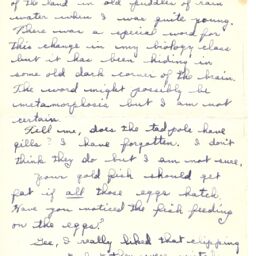 of the land in old puddles of rain
water when I was quite young.
There was a special word for
this change in my biology class
but it has been hiding in
some old dark corner of the brain.
The word might possibly be
metamorphosis but I am not
certain.
Tell me, does the tadpole have
gills? I have forgotten. I don't
think they do but I am not sure.
Your gold fish should get
fat if all those eggs hatch.
Have you noticed the fish feeding
on the eggs?
Gee, I really liked that clipping